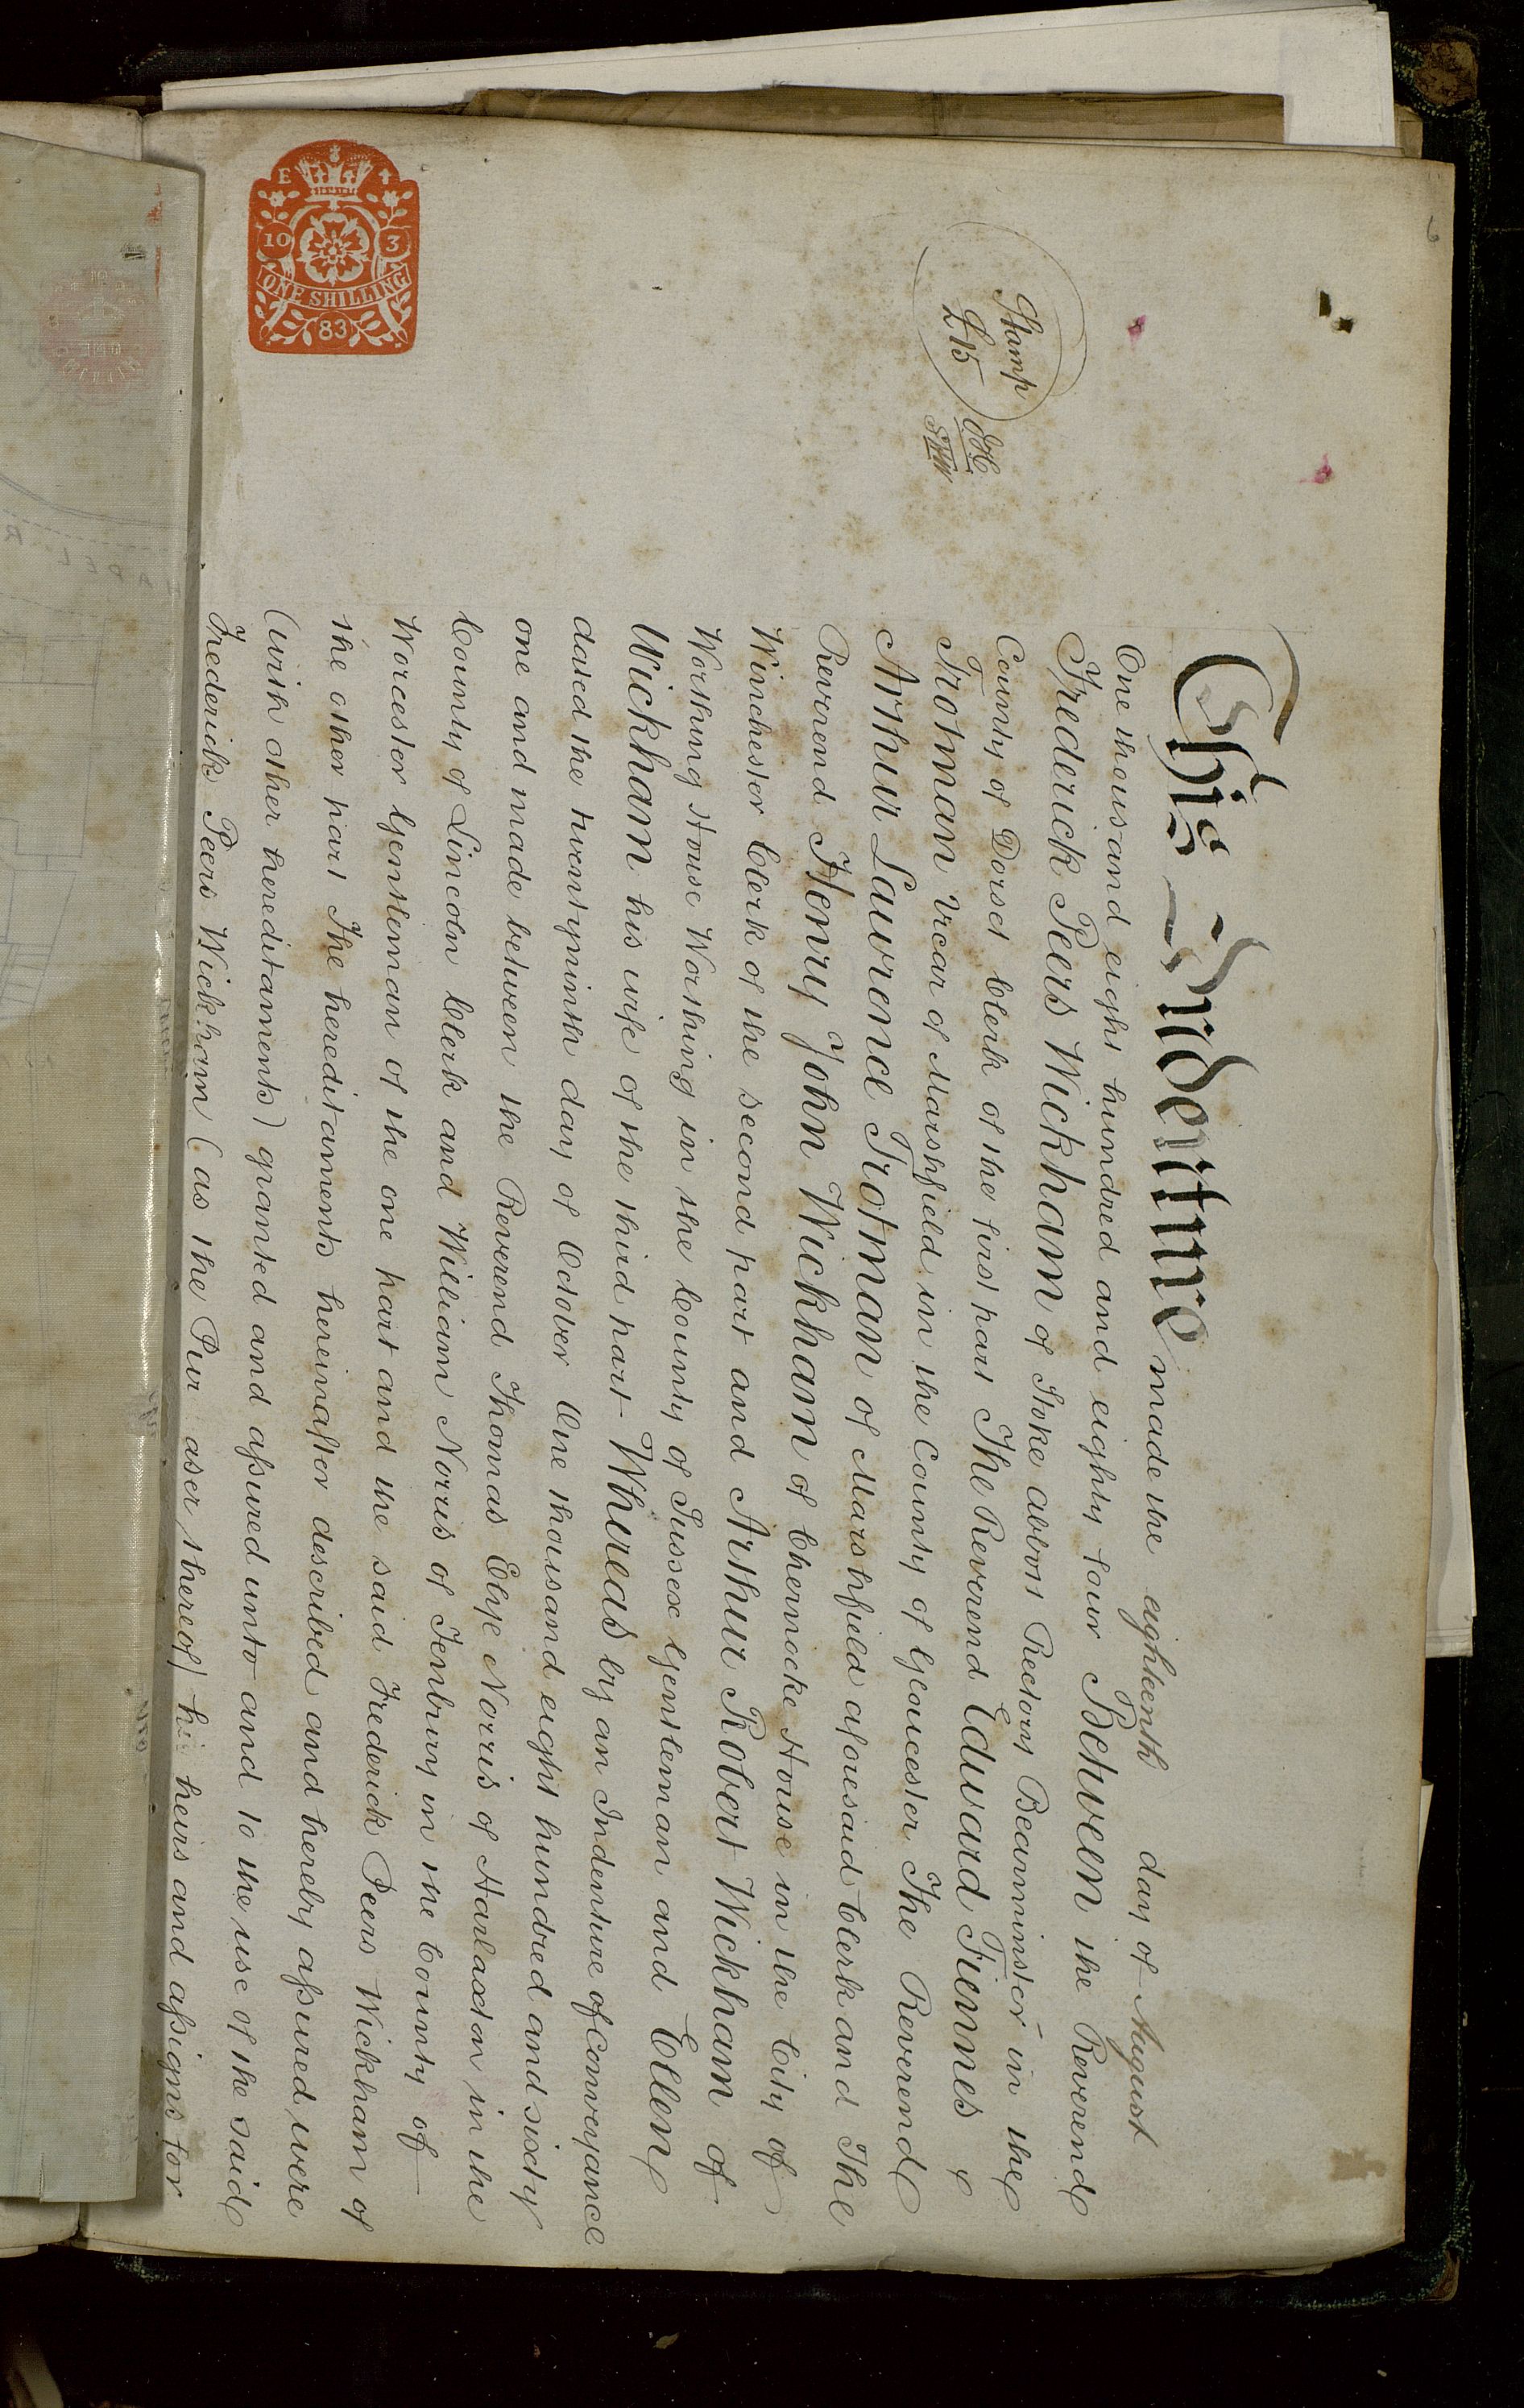 Stamp
£15
ONE SHILLING
10 3
83
This Indenture made the eighteenth day of August
One thousand eight hundred and eighty four Between the Reverend
Frederick Peers Wickham of Stoke abbott Rectory Beaminster in the
County of Dorset Clerk of the first part The Reverend Edward Fiennes
Trotman Vicar of Marshfield in the County of Gloucester The Reverend
Arthur Lawrence Trotman of Marshfield aforesaid Clerk and The
Reverend Henry John Wickham of Chernocke House in the City of
Winchester Clerk of the second part and Arthur Robert Wickham of
Worthing House Worthing in the County of Sussex Gentleman and Ellen
Wickham his wife of the third part Whereas by an Indenture of Conveyance
dated the twentyninth day of October One thousand eight hundred and sixty
one and made between the Reverend Thomas Elye Norris of Harlaxton in the
County of Lincoln Clerk and William Norris of Tenbury in the County of
Worcester Gentleman of the one part and the said Frederick Peers Wickham of
the other part The hereditaments hereinafter described and hereby assured were
(with other hereditaments) granted and assured unto and to the use of the said
Frederick Peers Wickham (as the Pur aser thereof) his heirs and assigns for